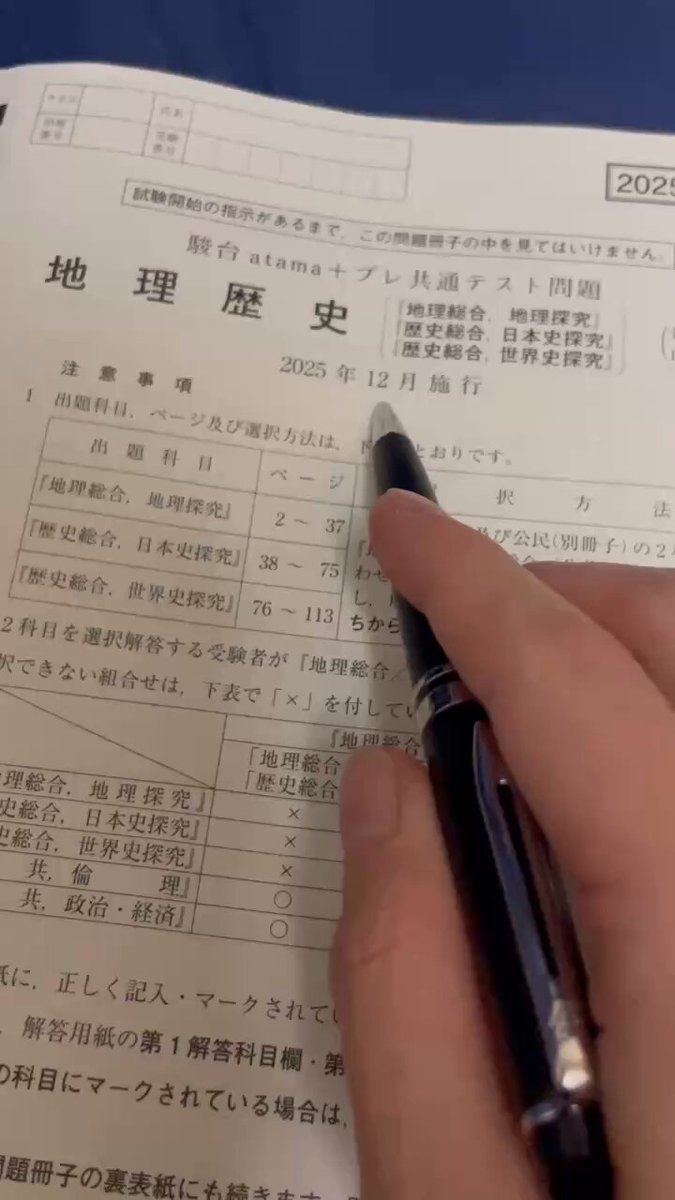 氏名
番号
番号
2025
試験開始の指示があるまで,この問題冊子の中を見てはいけません。
駿台atama+プレ共通テスト問題
地理歴史
『地理総合,地理探究』
『歴史総合,日本史探究』
『歴史総合,世界史探究』
2025年12月施行
注意事項
1 出題科目,ページ及び選択方法は,下 とおりです。
出題科目
ページ
択方法
『地理総合,地理探究』
2~37
『歴史総合,日本史探究』
38~75
『歴史総合,世界史探究』
76~113
及び公民(別冊子)の2
わせ
し,
ちから
2科目を選択解答する受験者が「地理総合
択できない組合せは,下表で「×」を付してい
『地理総合
「地理総合
「歴史総合
理総合,地理探究』
×
史総合,日本史探究』
×
史総合,世界史探究』
×
共,倫理』
○
共,政治・経済』
○
紙に,正しく記入・マークされてい
,解答用紙の第1解答科目欄・第
の科目にマークされている場合は,
問題冊子の裏表紙にも続きます